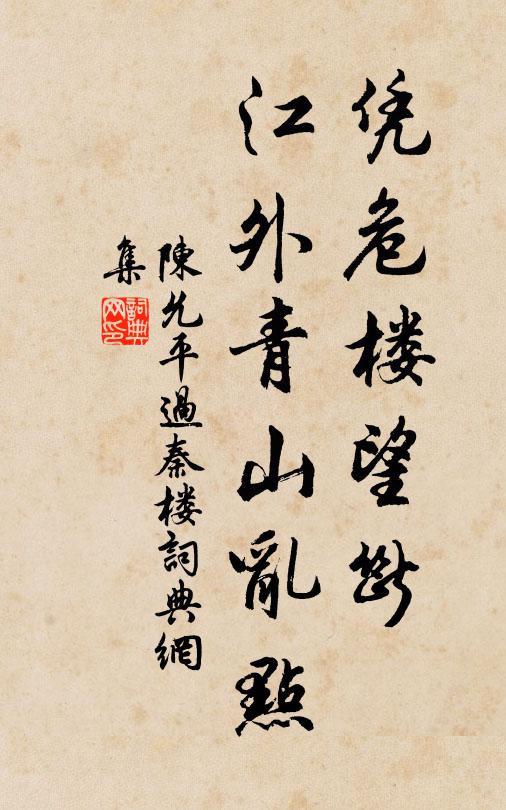 凭危楼望斷
江外青山亂點
陳允平過秦楼詞典網
集
詞典网印